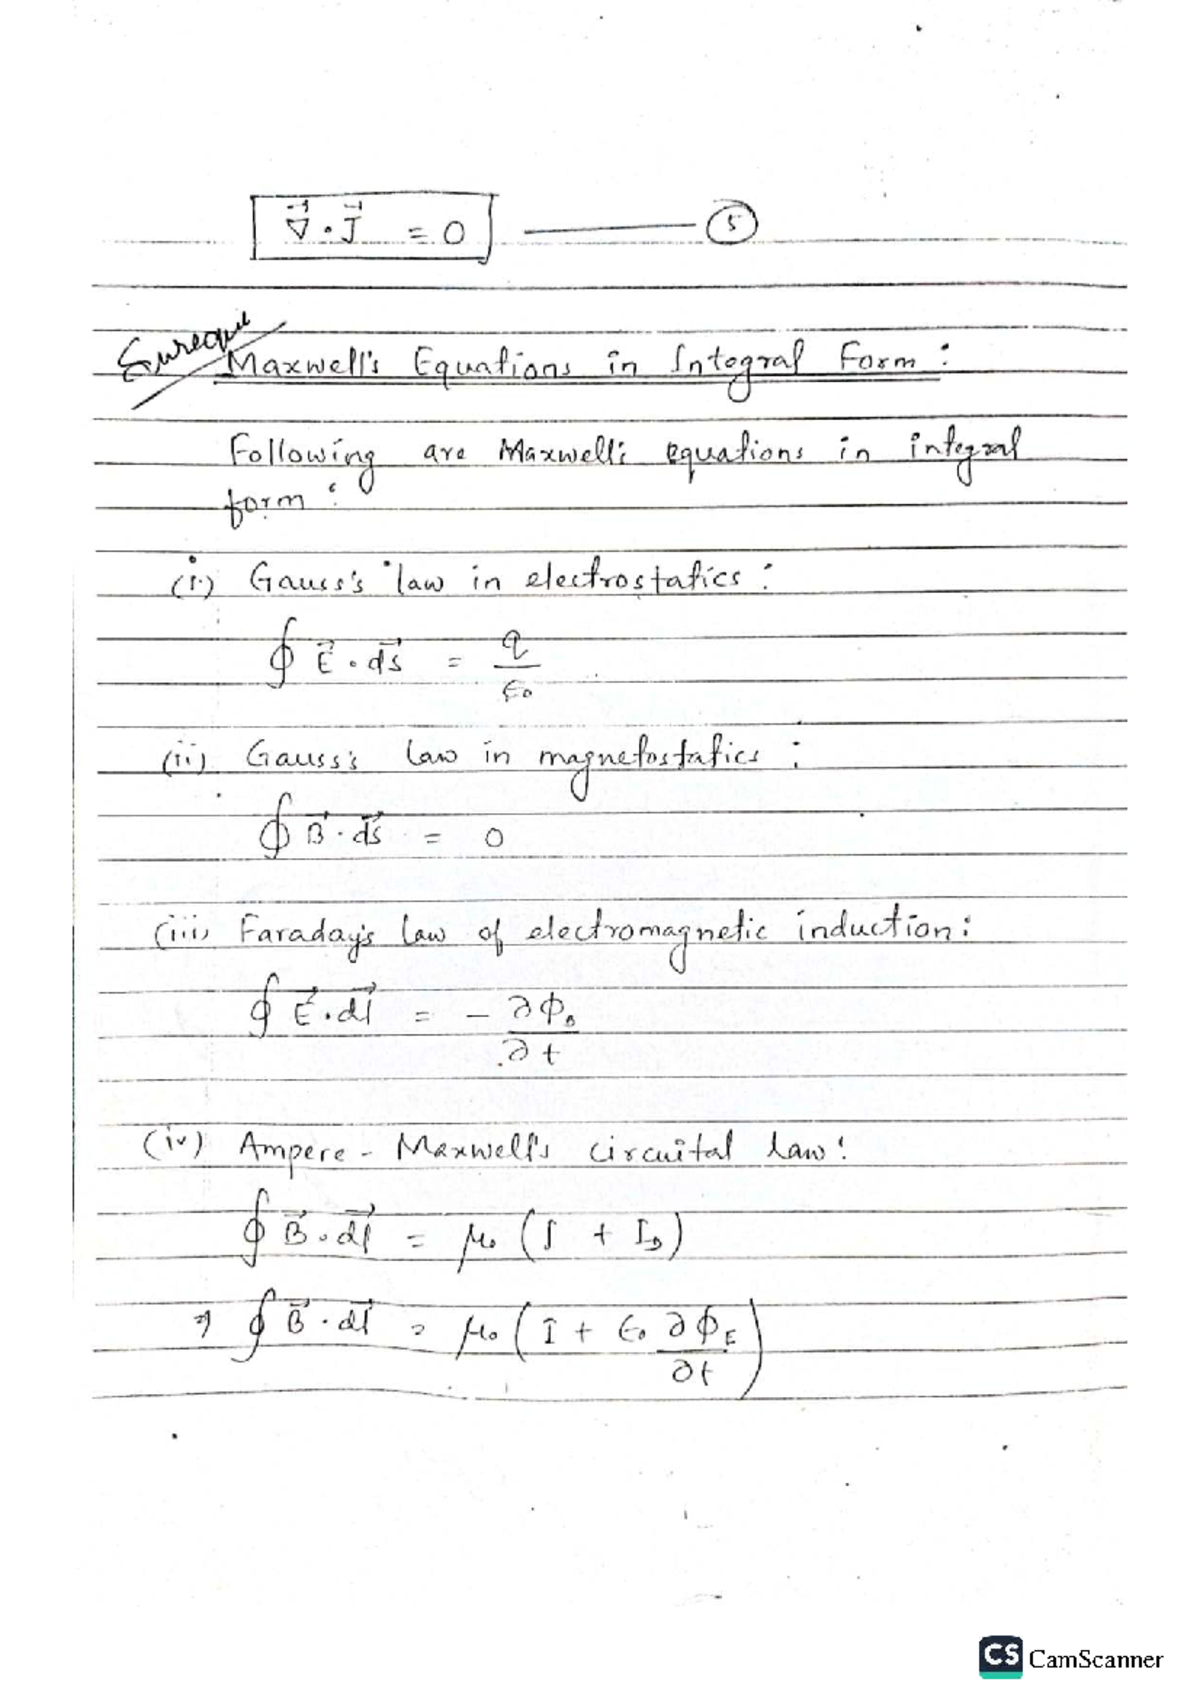 ∇⃗ · J⃗ = 0 ——— (5)
Maxwell's Equations in Integral Form :
Following are Maxwell's equations in integral
form :
(i) Gauss's law in electrostatics :
∮ E⃗ · ds⃗ = q/ε₀
(ii) Gauss's law in magnetostatics :
∮ B⃗ · ds⃗ = 0
(iii) Faraday's law of electromagnetic induction :
∮ E⃗ · dl⃗ = - ∂Φ_B/∂t
(iv) Ampere - Maxwell's circuital law :
∮ B⃗ · dl⃗ = μ₀ (I + I_D)
⇒ ∮ B⃗ · dl⃗ = μ₀ (I + ε₀ ∂Φ_E/∂t)
CS CamScanner